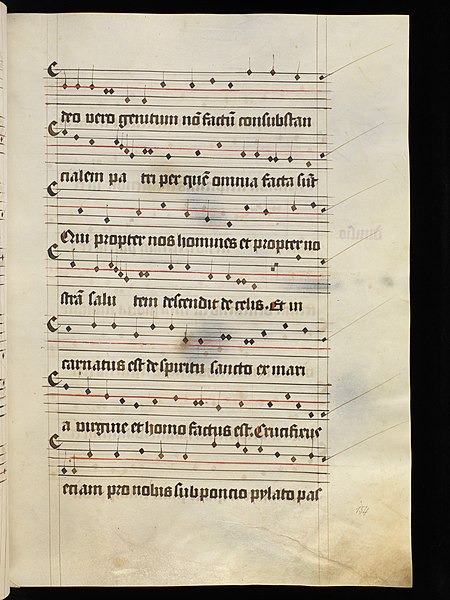 deo vero genitum nō factū consubstan
cialem pa tri per quē omnia facta sūt
Qui propter nos homines et propter no
strā salu tem descendit de celis. Et in
carnatus est de spiritu sancto ex mari
a virgine et homo factus est. Crucifixus
eciam pro nobis sub poncio pylato pas
154